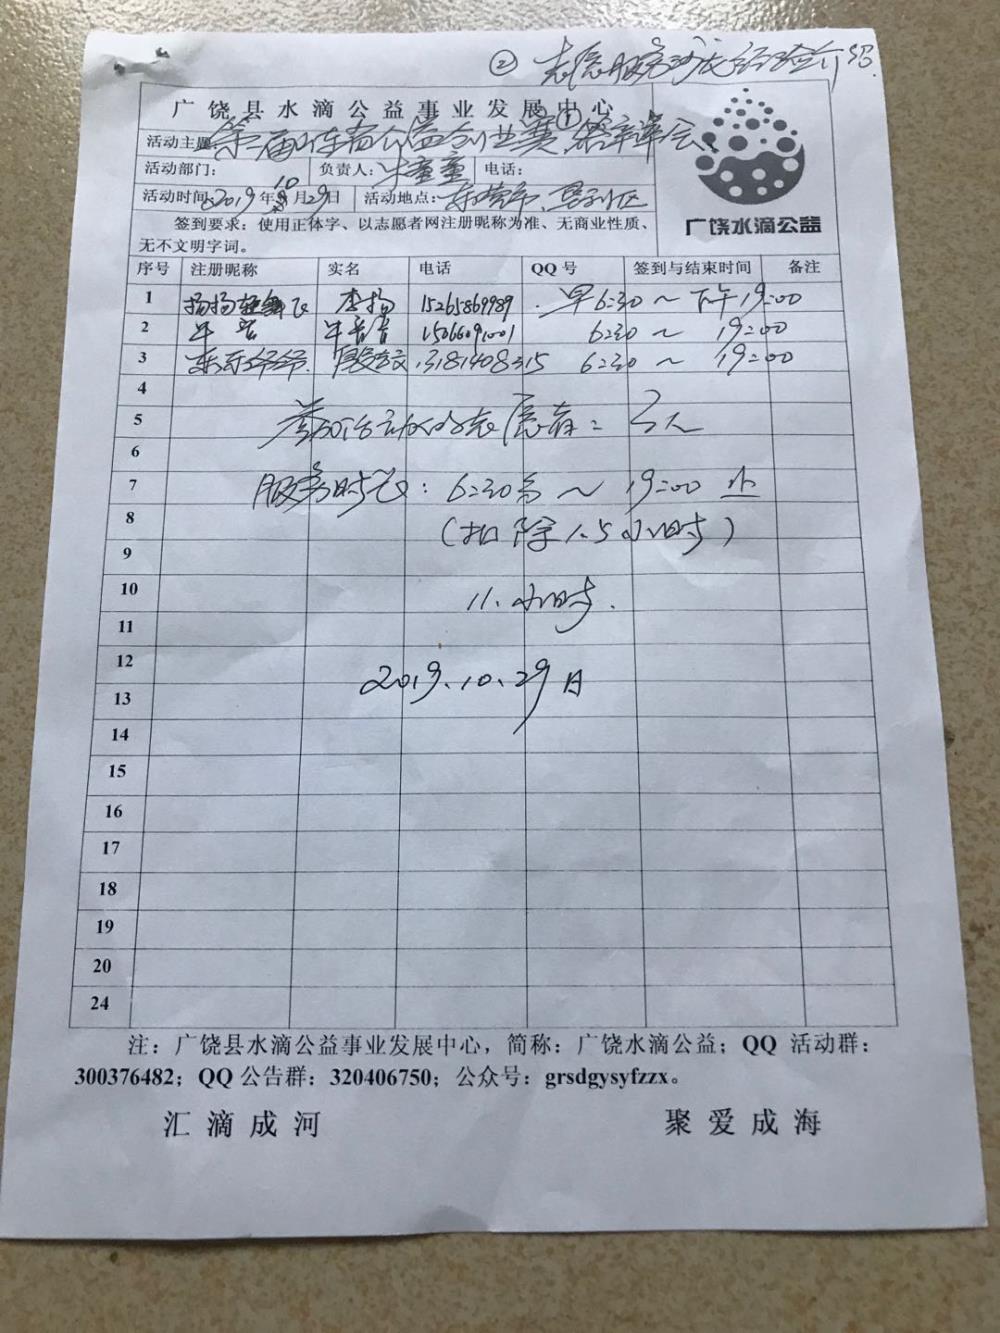 ② 志愿服务沙龙经验介绍
广饶县水滴公益事业发展中心
活动主题 第一届 公益创业赛
活动部门： 负责人：牛童童 电话：
活动时间：2019年10月29日 活动地点：东营市
广饶水滴公益
签到要求：使用正体字、以志愿者网注册昵称为准、无商业性质、
无不文明字词。
序号 注册昵称 实名 电话 QQ号 签到与结束时间 备注
1 扬扬 飞 李扬 15265869989 早6:30～下午19:00
2 牛 6:30～19:00
3 6:30～19:00
4
5 参加活动的志愿者：3人
6
7 服务时间：6:30至～19:00止
8 (扣除1.5小时)
9
10 11.小时.
11
12 2019.10.29日
13
14
15
16
17
18
19
20
24
注：广饶县水滴公益事业发展中心，简称：广饶水滴公益；QQ 活动群：
300376482；QQ 公告群：320406750；公众号：grsdgysyfzzx。
汇滴成河 聚爱成海